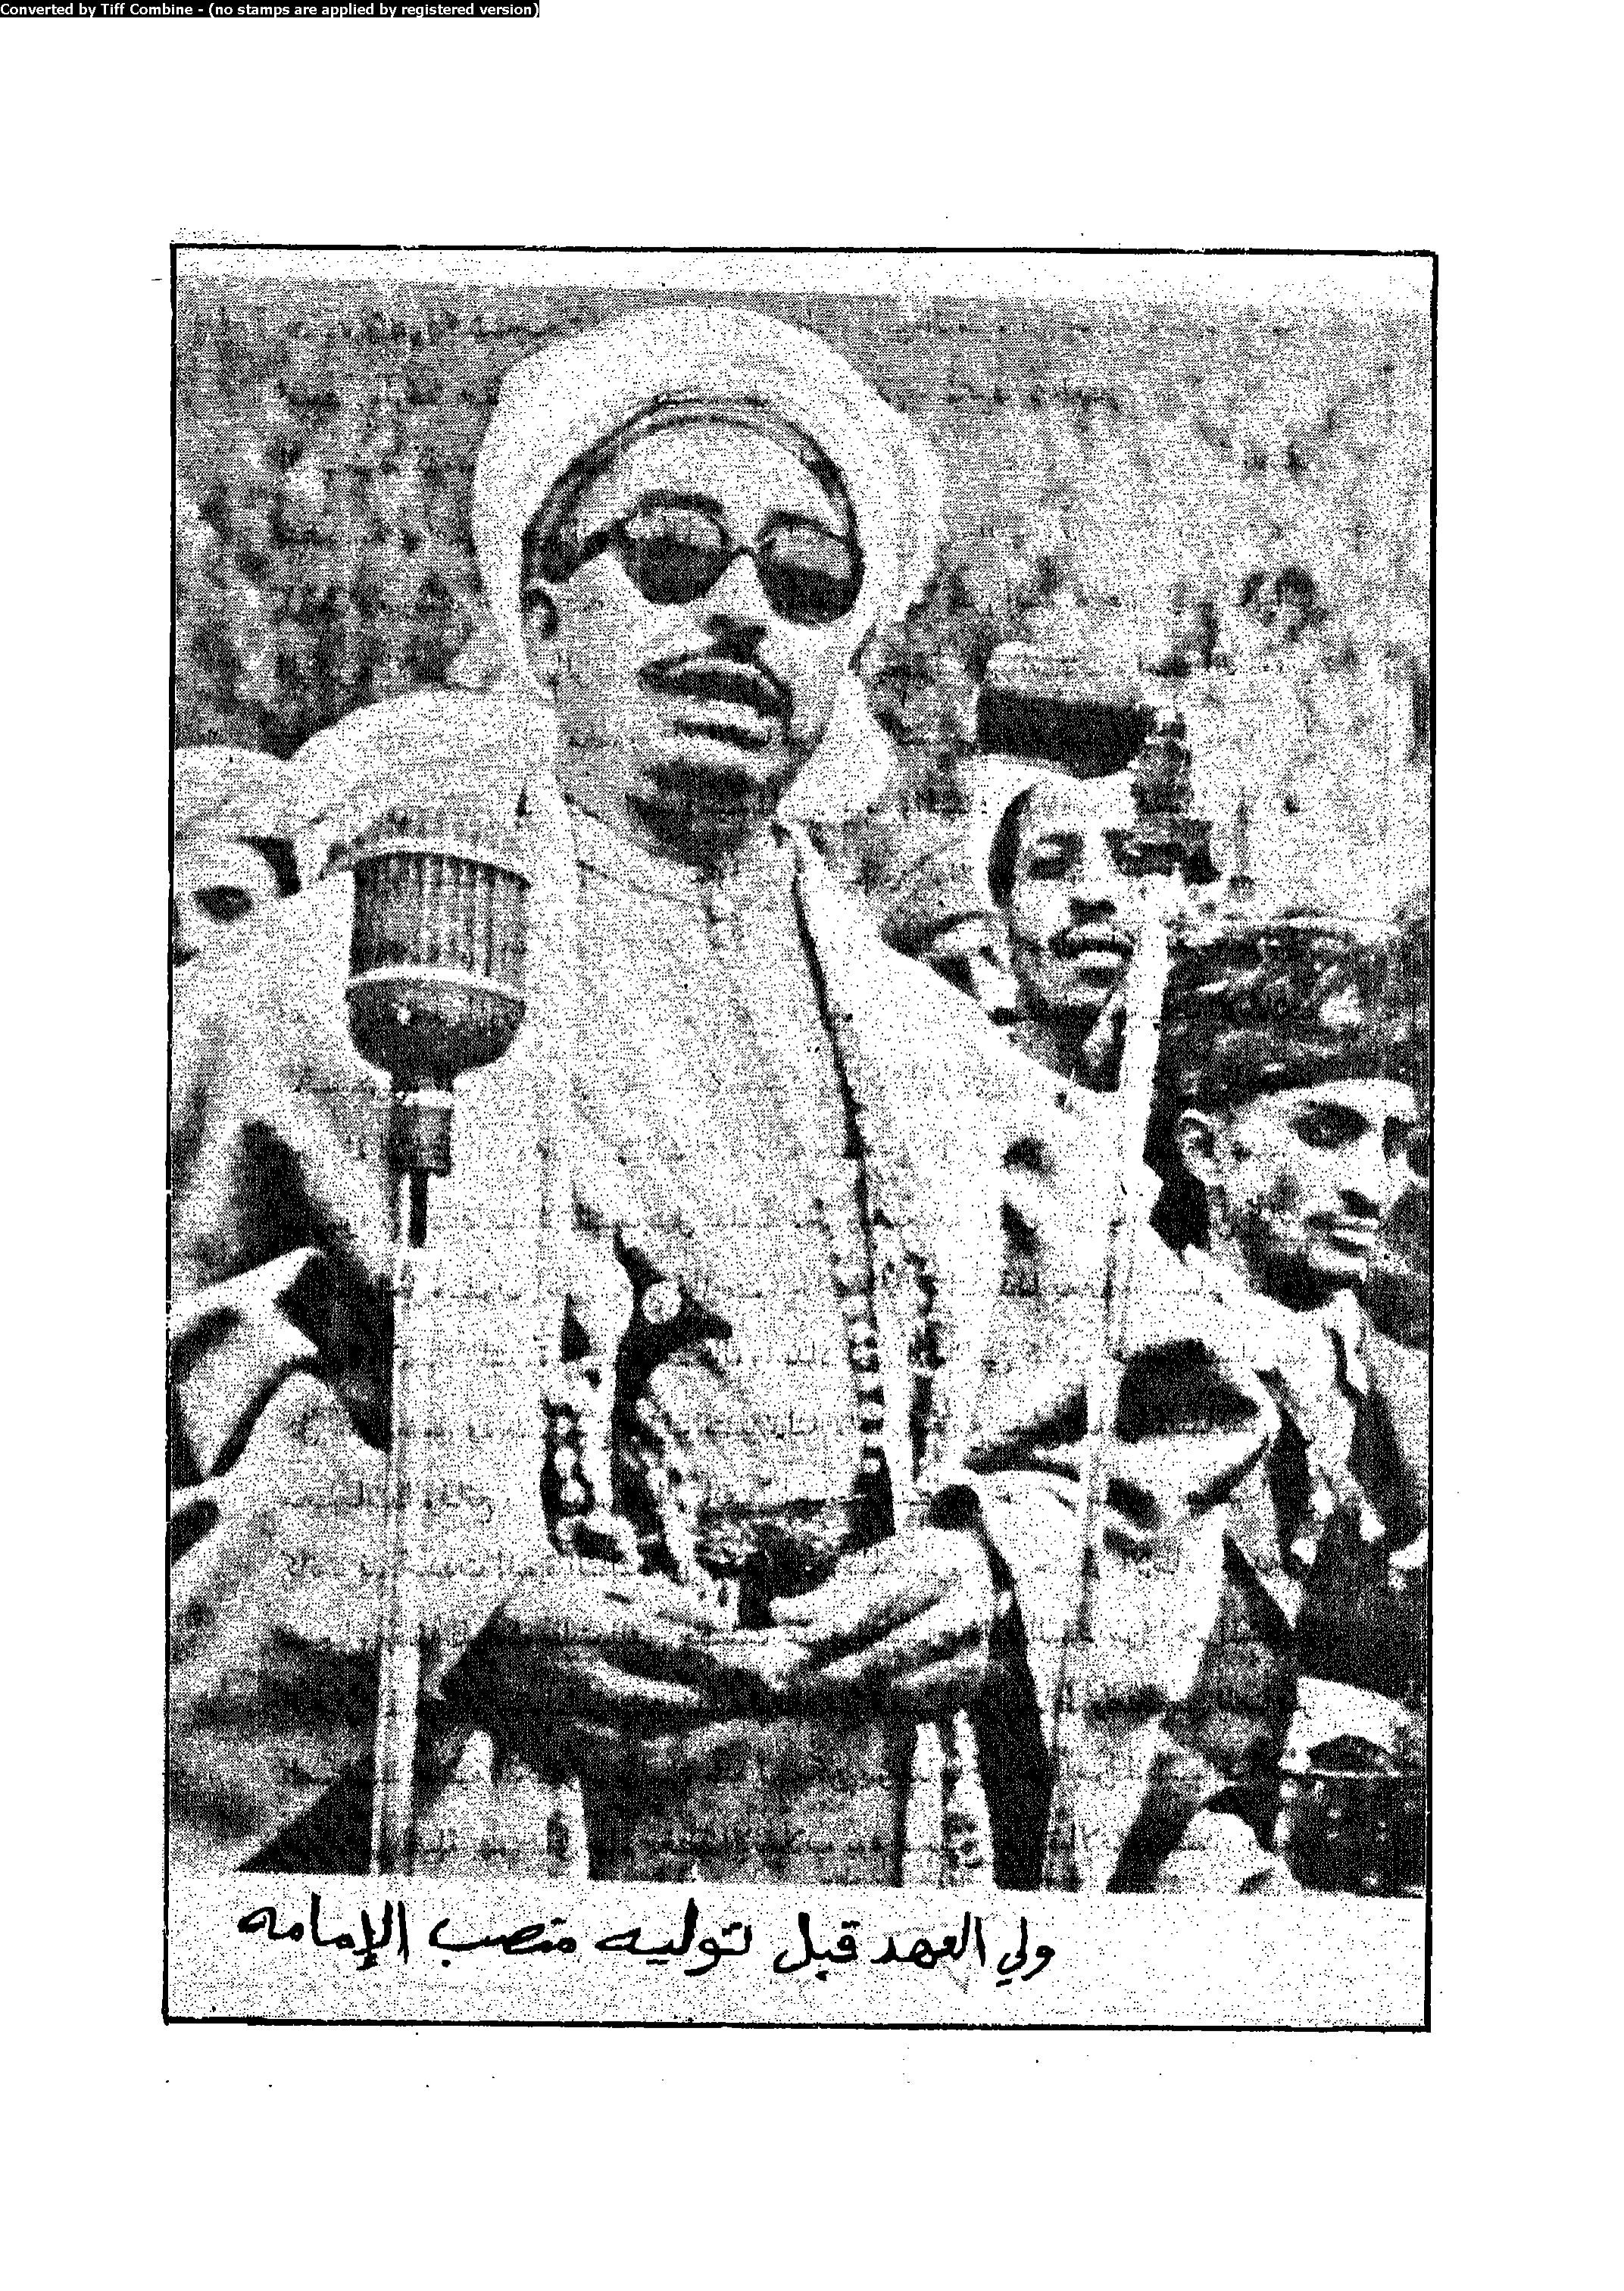 Converted by Tiff Combine - (no stamps are applied by registered version)
ولي العهد قبل توليه منصب الإمامه